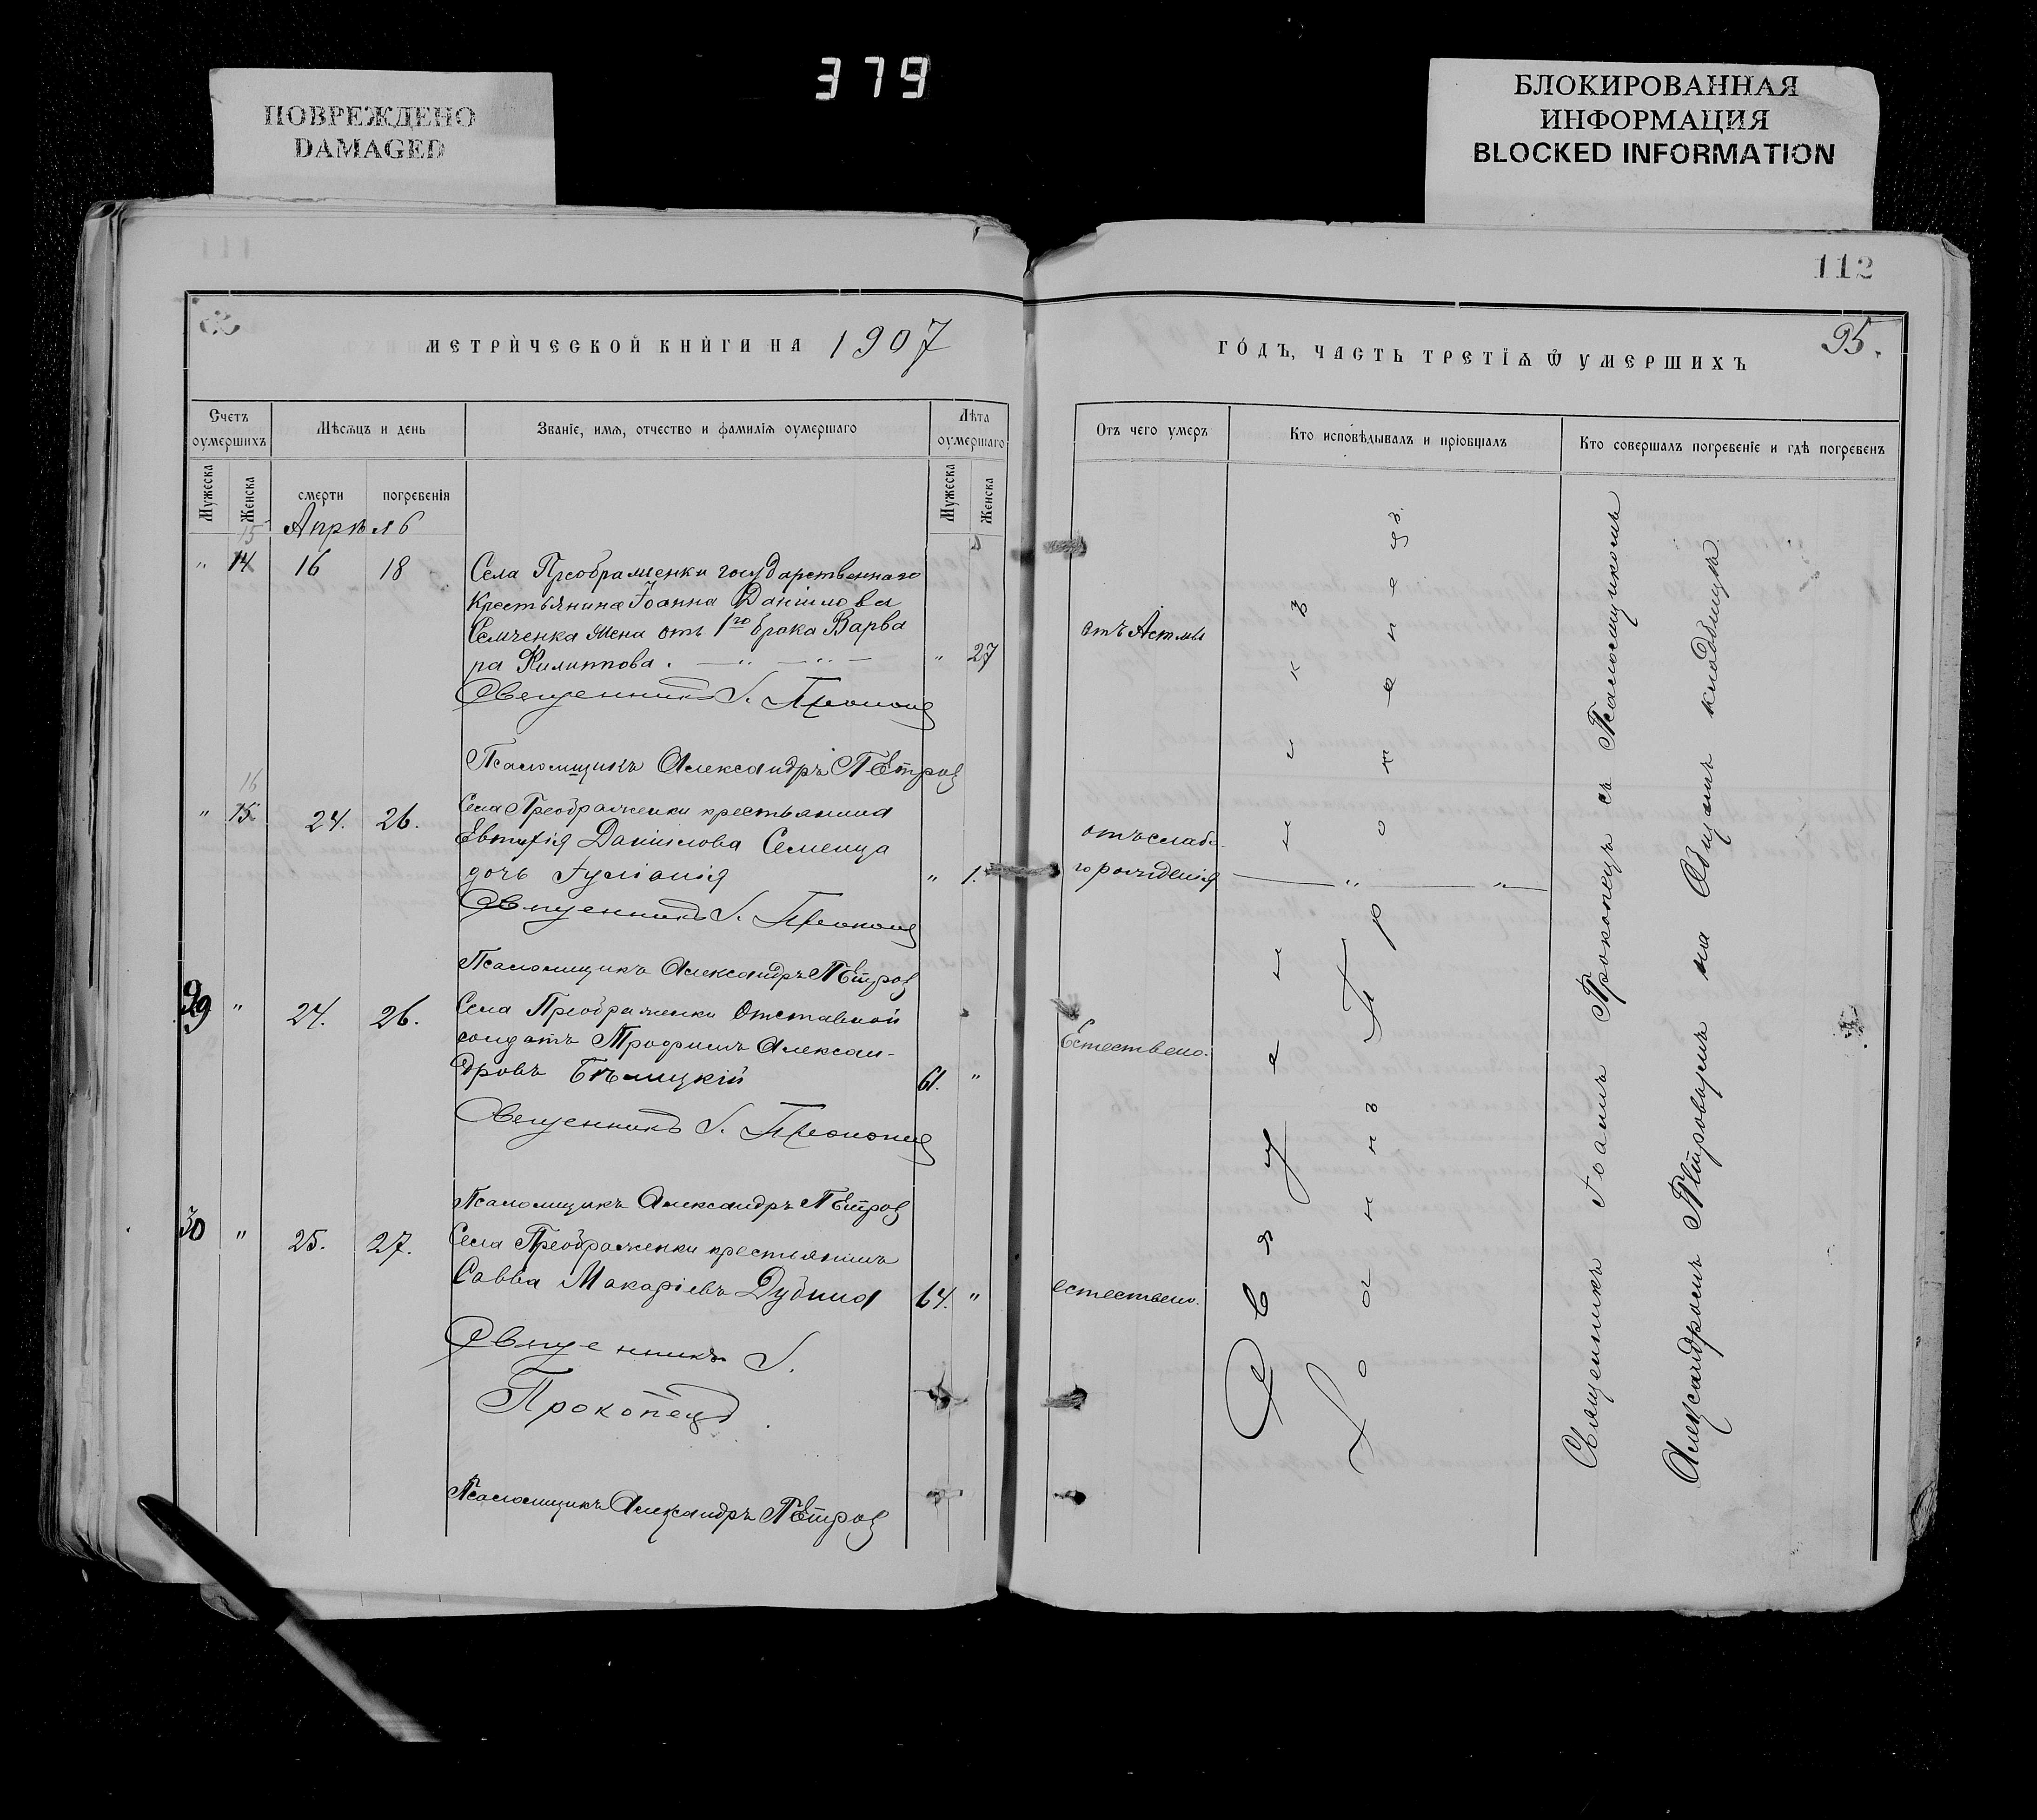 379
ПОВРЕЖДЕНО
DAMAGED
БЛОКИРОВАННАЯ
ИНФОРМАЦИЯ
BLOCKED INFORMATION
112
95.
МЕТРИЧЕСКОЙ КНИГИ НА 1907
ГОДЪ, ЧАСТЬ ТРЕТІѦ Ѿ УМЕРШИХЪ
Счетъ оумершихъ
Мѣсѧцъ и день
Званіе, имѧ, отчество и фамиліѧ оумершаго
Лѣта оумершаго
Мужеска
Женска
смерти
погребеніѧ
Мужеска
Женска
Отъ чего умеръ
Кто исповѣдывалъ и пріобщалъ
Кто совершалъ погребеніе и гдѣ погребенъ
Апрѣль
15
" 14 16 18 Села Преображенки государственнаго
крестьянина Іоанна Данилова
Семченка жена отъ 1го брака Варва
ра Филиппова. " 27
отъ Астмы
Священникъ І. Прокопец
Псаломщикъ Александръ Петров
16
" 15 24. 26. Села Преображенки крестьянина
Евтихія Данилова Семенца
дочь Іуліанія " 1.
отъ слаба
го рожденія
Священникъ І. Прокопец
Псаломщикъ Александръ Петров
29 " 24. 26. Села Преображенки Отставной
солдатъ Трофимъ Алексан-
дровъ Бѣлицкій 61. "
Естествено.
Священникъ І. Прокопец
Псаломщикъ Александръ Петров
30 " 25. 27. Села Преображенки крестянинъ
Савва Макаріевъ Дубина 64. "
естествено.
Священникъ І.
Прокопецъ
Псаломщикъ Александръ Петров
Священникъ
Іоаннъ Прокопецъ.
Священникъ Іоаннъ Прокопецъ съ Псаломщикомъ
Александромъ Петровымъ на Общемъ кладбищѣ